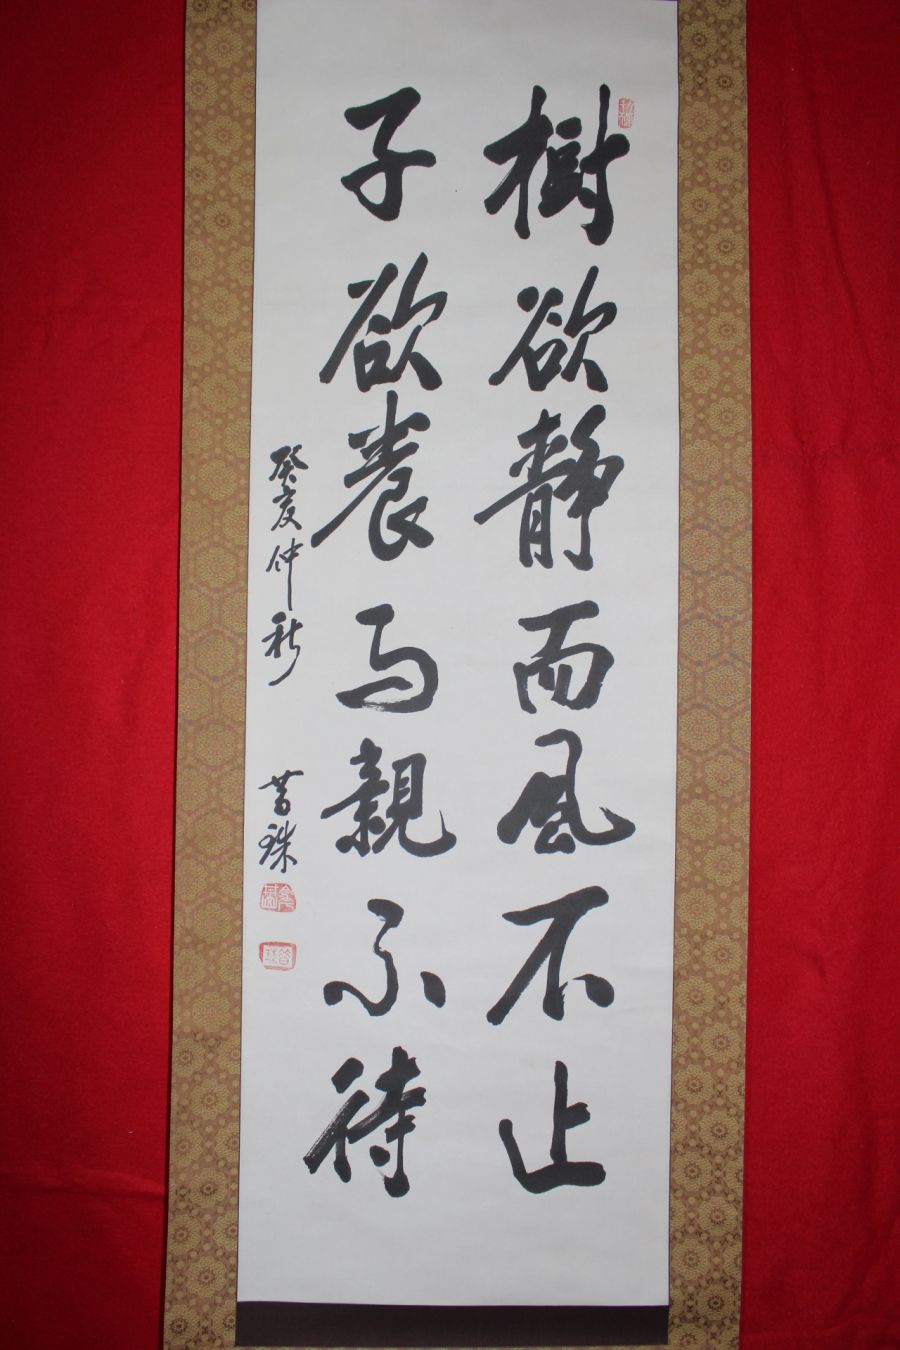 樹欲靜而風不止
子欲養而親不待
癸亥仲秋
普珠